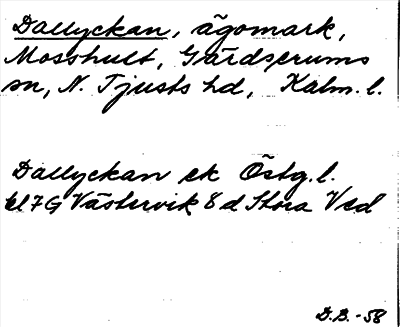 Dallyckan, ägomark,
Mosshult, Gärdserums
sn, N. Tjusts hd, Kalm. l.
Dallyckan ek Östg. l.
bl 7G Västervik 8 d Stora Ved
D.B. -58